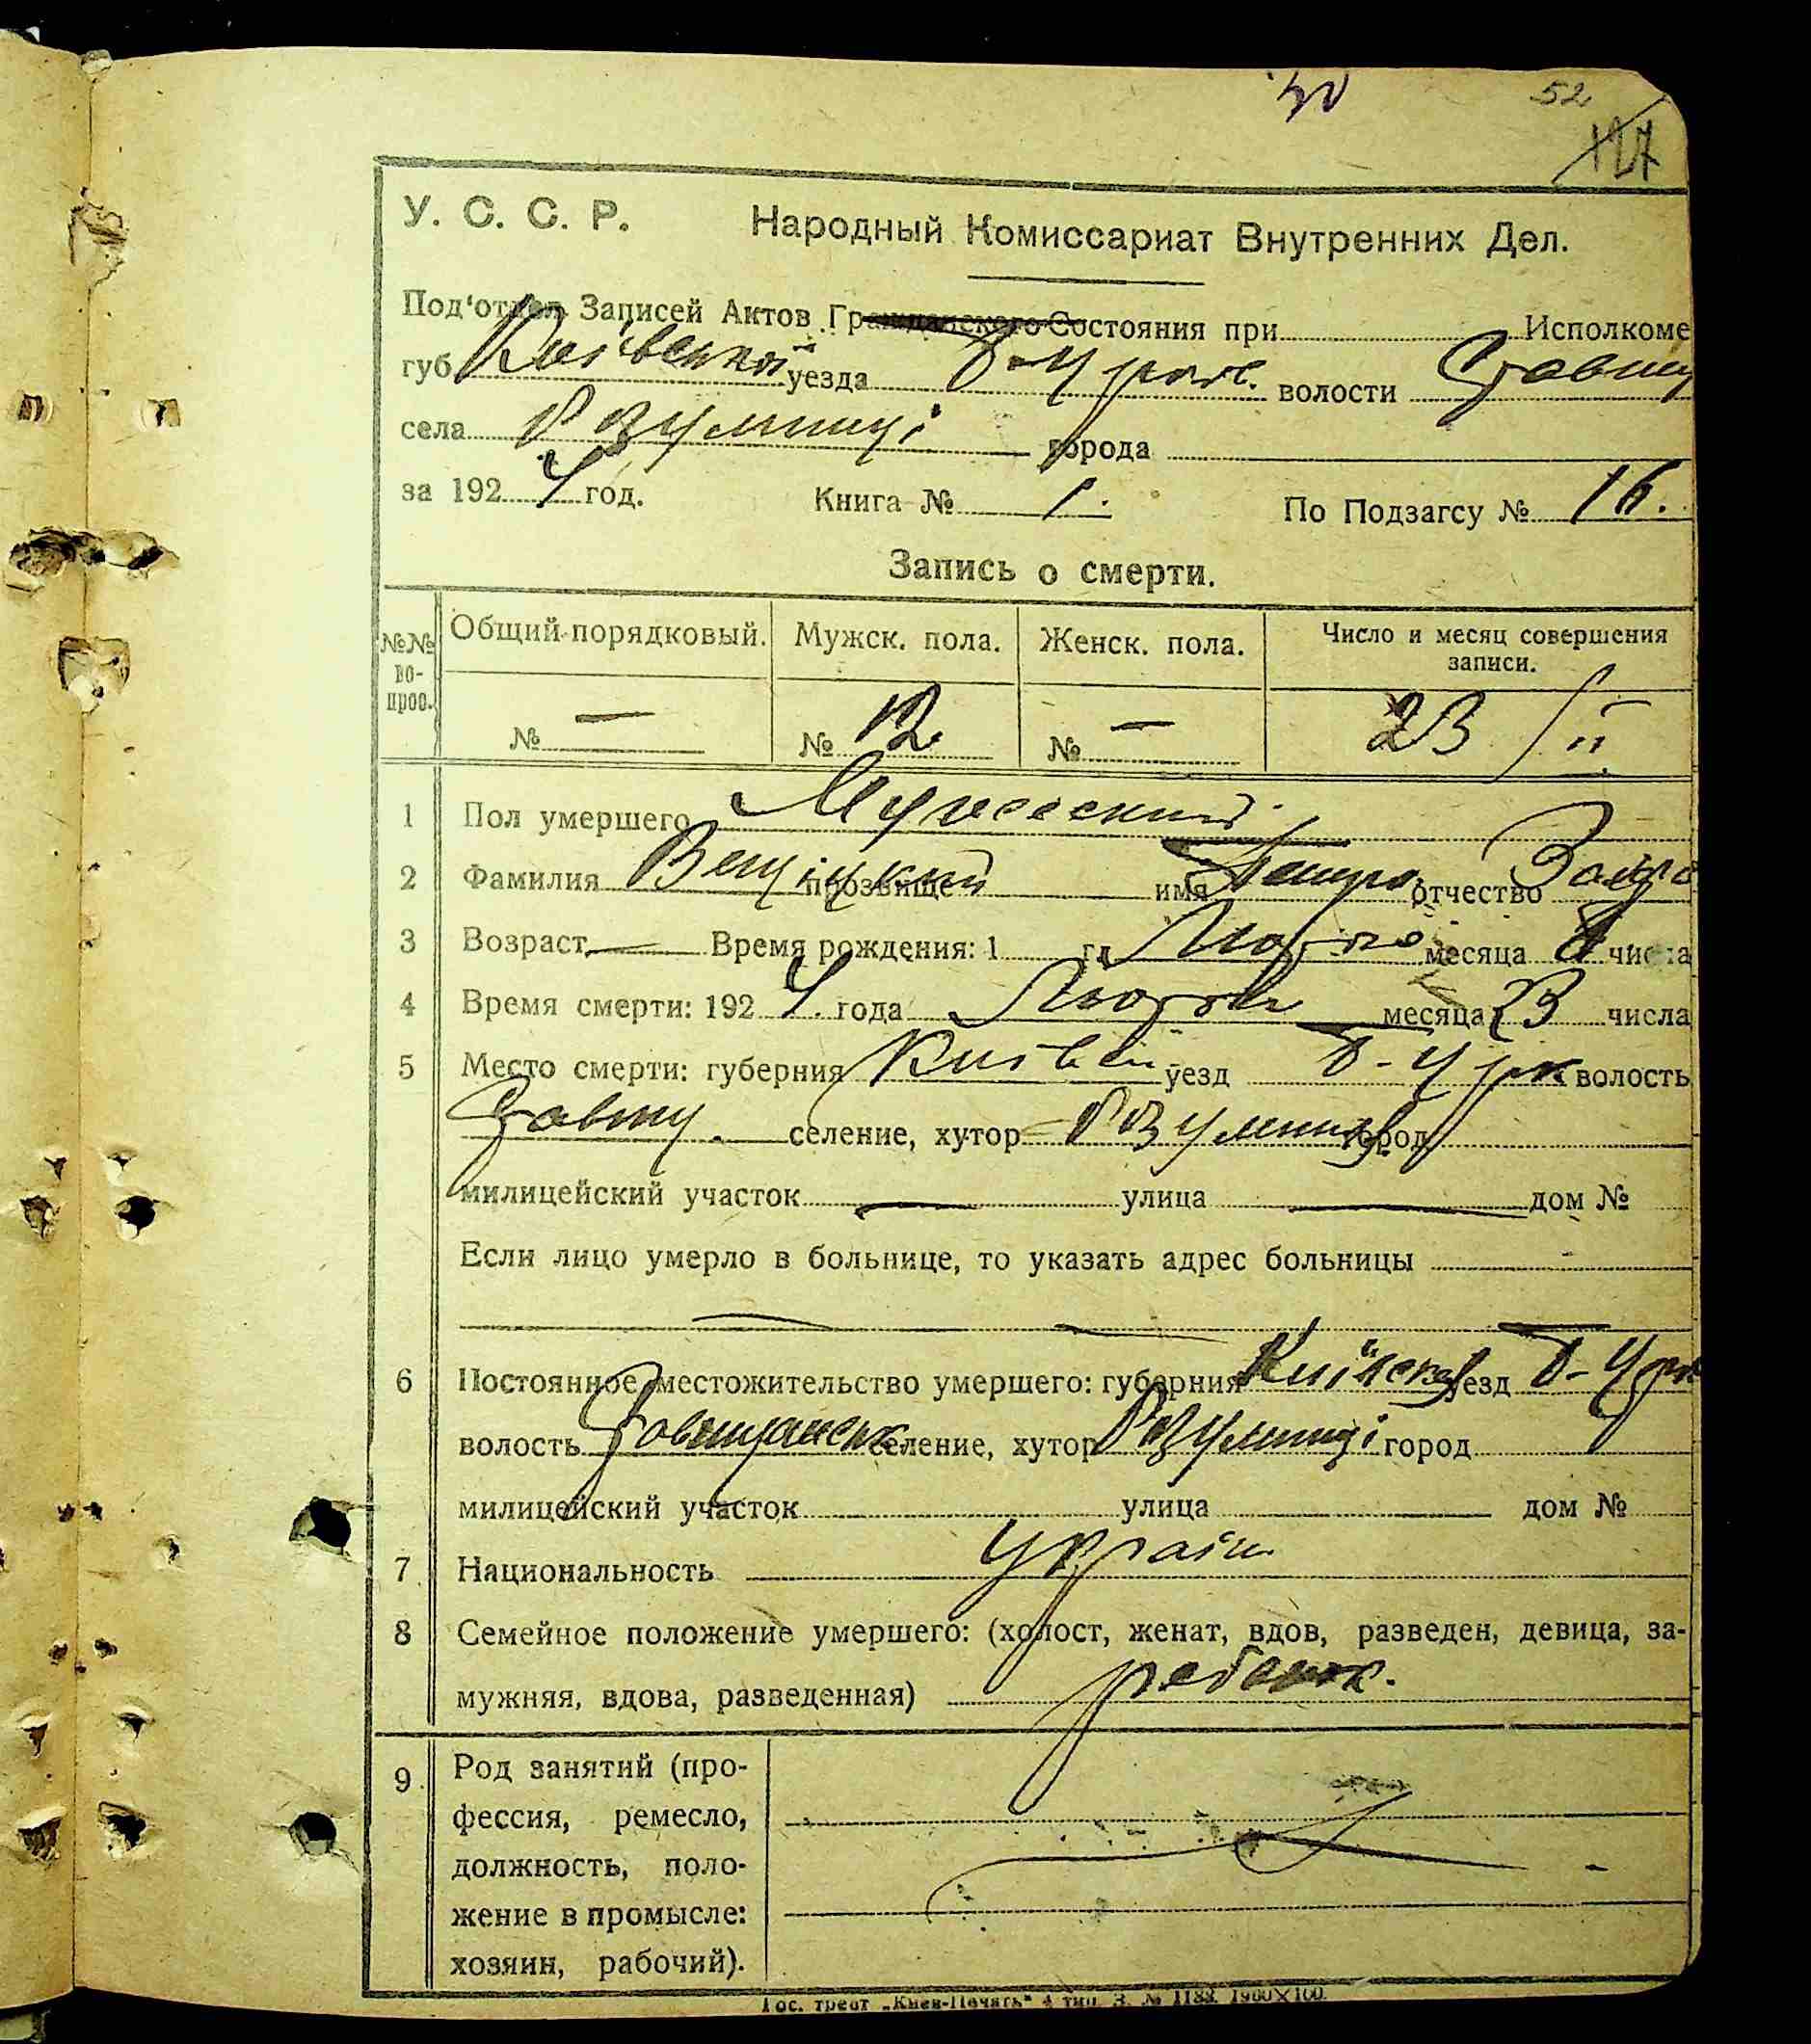 52
127
У. С. С. Р. Народный Комиссариат Внутренних Дел.
Под'отдел Записей Актов Гражданского Состояния при Исполкоме
губ. Київської уезда Б-Церк. волости Ставищ
села Розумниці города
за 1924 год. Книга № 1. По Подзагсу № 16.
Запись о смерти.
№№ вопрос. Общий порядковый. Мужск. пола. Женск. пола. Число и месяц совершения записи.
№ — № 12 № — 23/II
1 Пол умершего Мужеский
2 Фамилия прозвище имя Петро отчество
3 Возраст — Время рождения: 1 г. Лютого месяца числа
4 Время смерти: 1924 года Лютого месяца 23 числа
5 Место смерти: губерния Київськ уезд Б-Церк волость
Ставищ. селение, хутор Розумниці город
милицейский участок — улица — дом №
Если лицо умерло в больнице, то указать адрес больницы
6 Постоянное местожительство умершего: губерния Київськ уезд Б-Церк
волость Ставищанськ селение, хутор Розумниці город
милицейский участок улица дом №
7 Национальность Україн.
8 Семейное положение умершего: (холост, женат, вдов, разведен, девица, за-
мужняя, вдова, разведенная) ребенок.
9 Род занятий (про-
фессия, ремесло,
должность, поло-
жение в промысле:
хозяин, рабочий).
Гос. трест „Киев-Печать" 4 тип. З. № 1183. 1900×100.